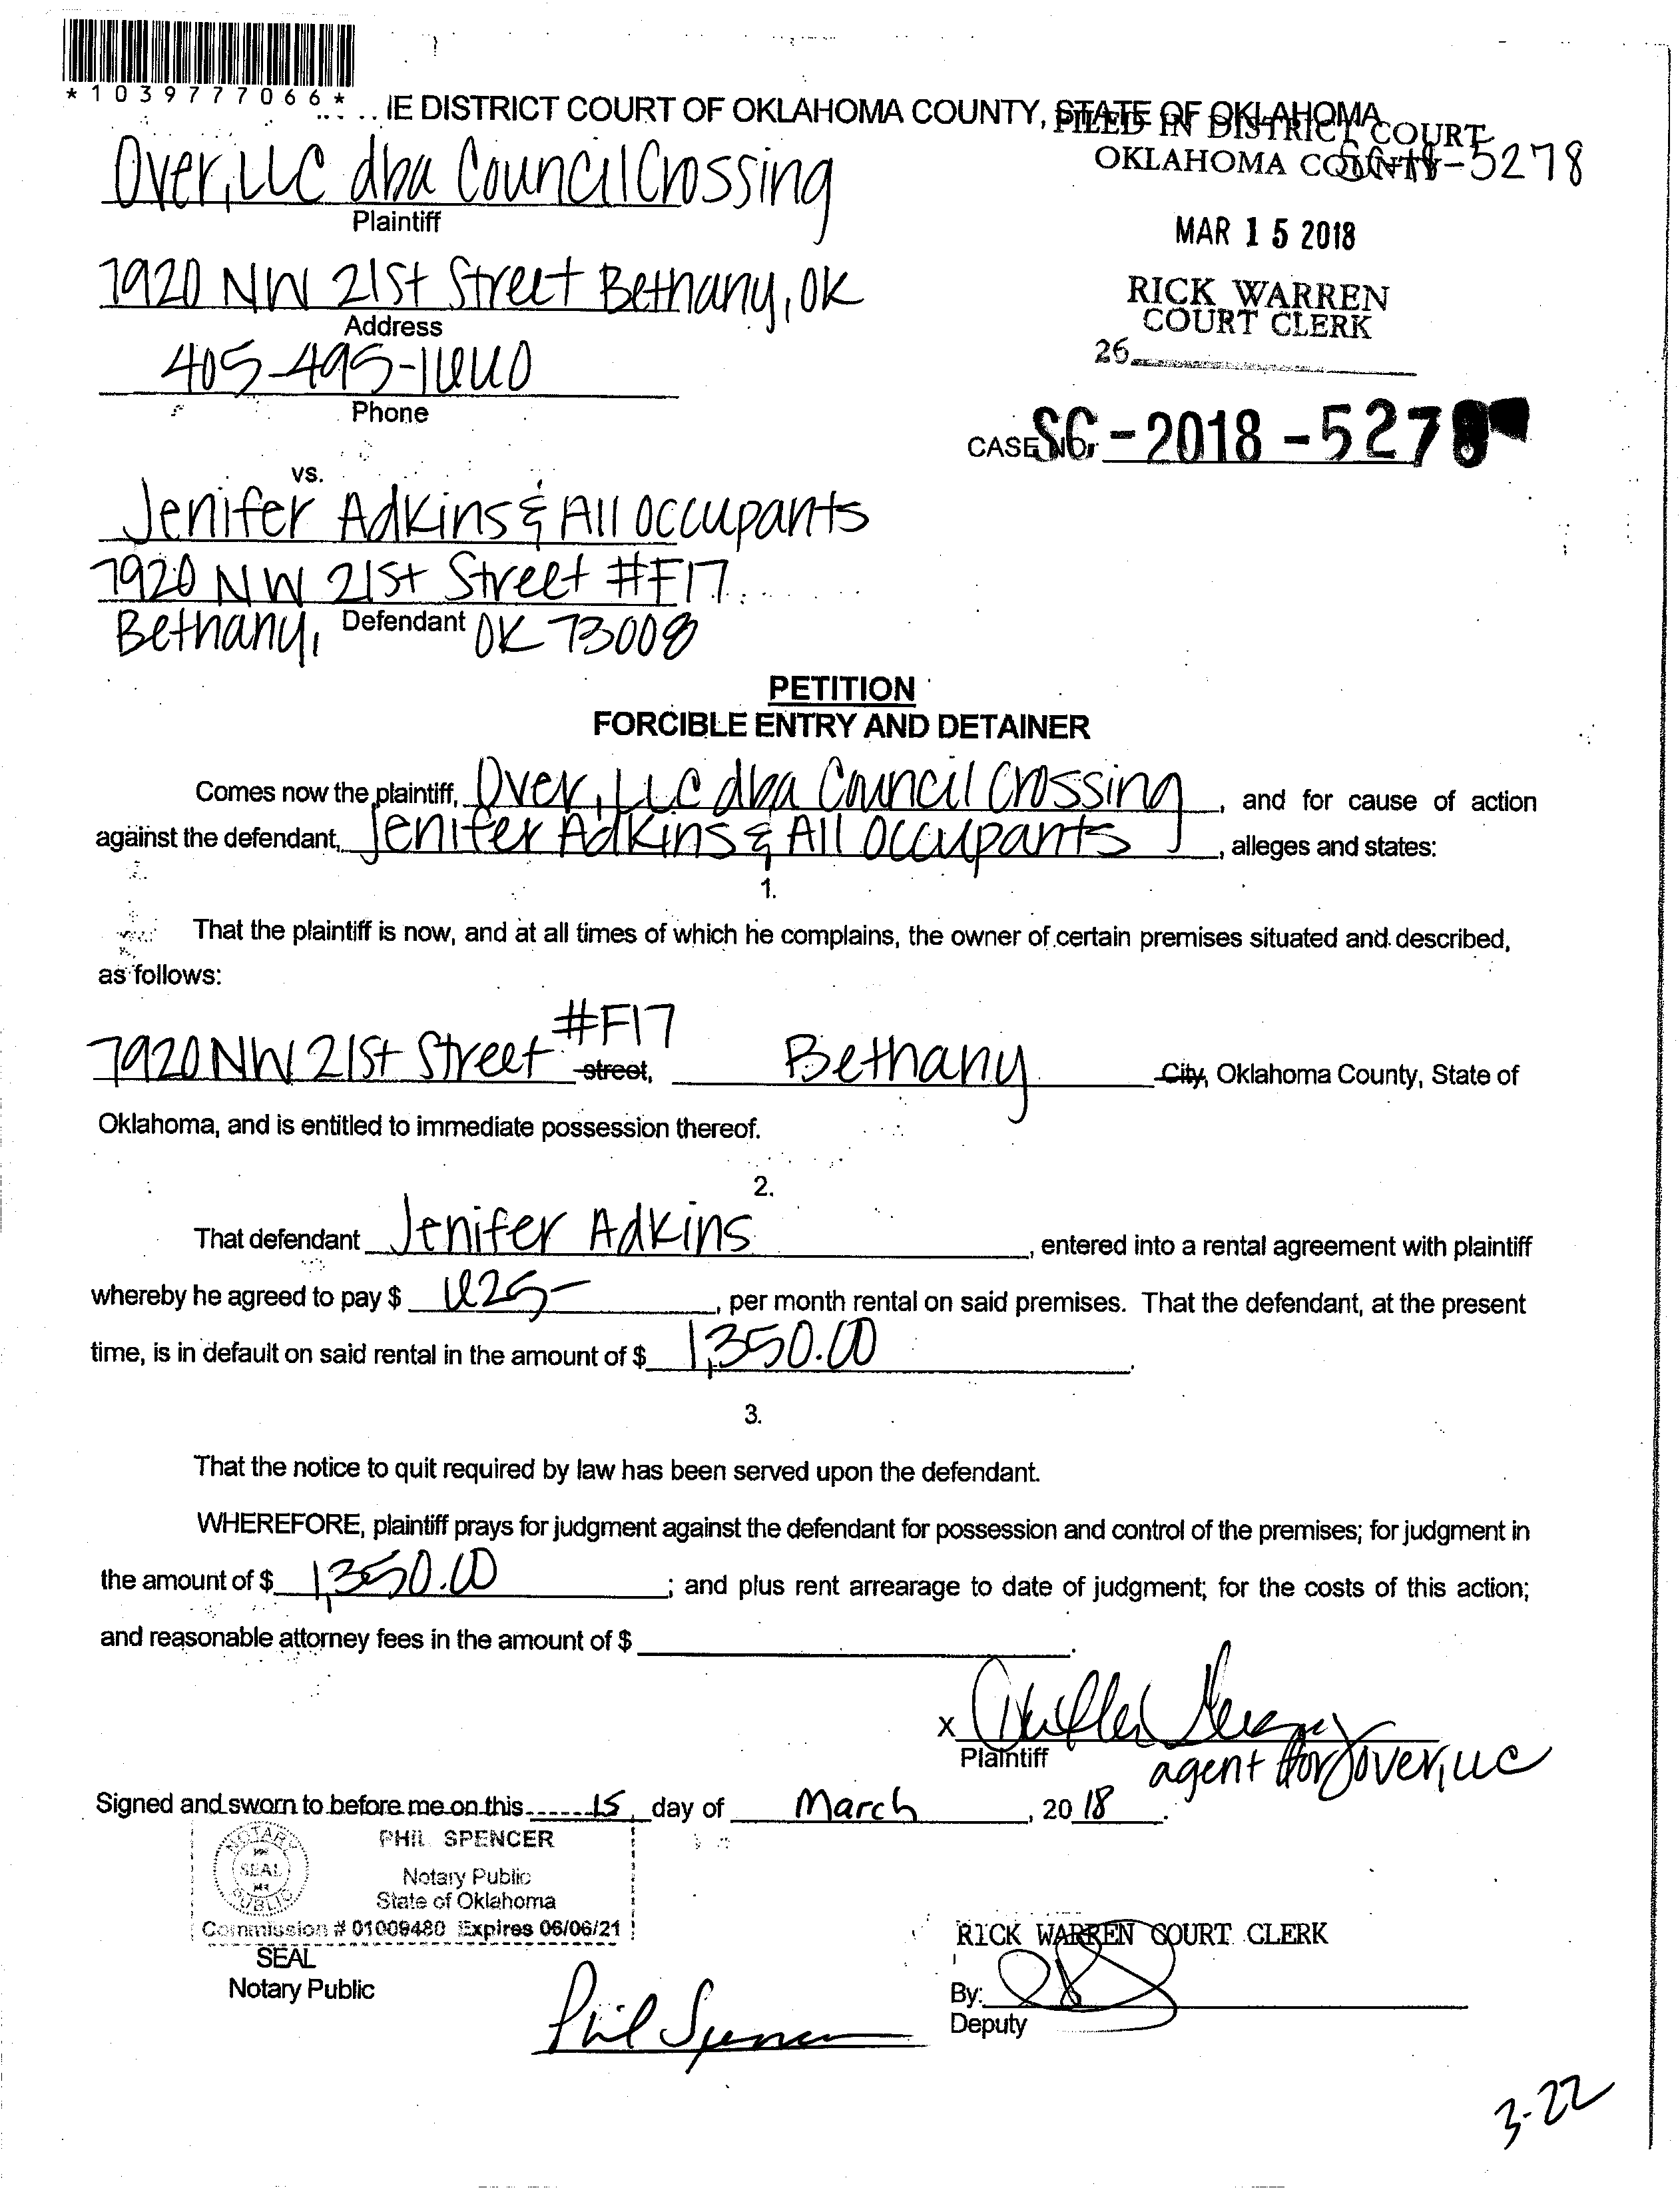 *1039777066*
IE DISTRICT COURT OF OKLAHOMA COUNTY, STATE OF OKLAHOMA
FILED IN DISTRICT COURT
OKLAHOMA COUNTY
SC-18-5278
Over, LLC dba Council Crossing
Plaintiff
MAR 15 2018
7920 NW 21st Street Bethany, OK
Address
RICK WARREN
COURT CLERK
405-495-1660
Phone
26
CASE NO. SC-2018-5278
vs.
Jenifer Adkins & All occupants
7920 NW 21st Street #F17
Bethany, OK 73008
Defendant
PETITION
FORCIBLE ENTRY AND DETAINER
Comes now the plaintiff, Over, LLC dba Council Crossing, and for cause of action
against the defendant, Jenifer Adkins & All Occupants, alleges and states:
1.
That the plaintiff is now, and at all times of which he complains, the owner of certain premises situated and described,
as follows:
7920 NW 21st Street #F17 street, Bethany City, Oklahoma County, State of
Oklahoma, and is entitled to immediate possession thereof.
2.
That defendant Jenifer Adkins, entered into a rental agreement with plaintiff
whereby he agreed to pay $ 625-, per month rental on said premises. That the defendant, at the present
time, is in default on said rental in the amount of $ 1,350.00.
3.
That the notice to quit required by law has been served upon the defendant.
WHEREFORE, plaintiff prays for judgment against the defendant for possession and control of the premises; for judgment in
the amount of $ 1,350.00; and plus rent arrearage to date of judgment; for the costs of this action;
and reasonable attorney fees in the amount of $ .
X
Plaintiff
agent for Over, LLC
Signed and sworn to before me on this 15, day of March, 20 18.
NOTARY
SEAL
PUBLIC
PHIL SPENCER
Notary Public
State of Oklahoma
Commission # 01009480 Expires 06/06/21
SEAL
Notary Public
Phil Spencer
RICK WARREN COURT CLERK
By:
Deputy
3-22